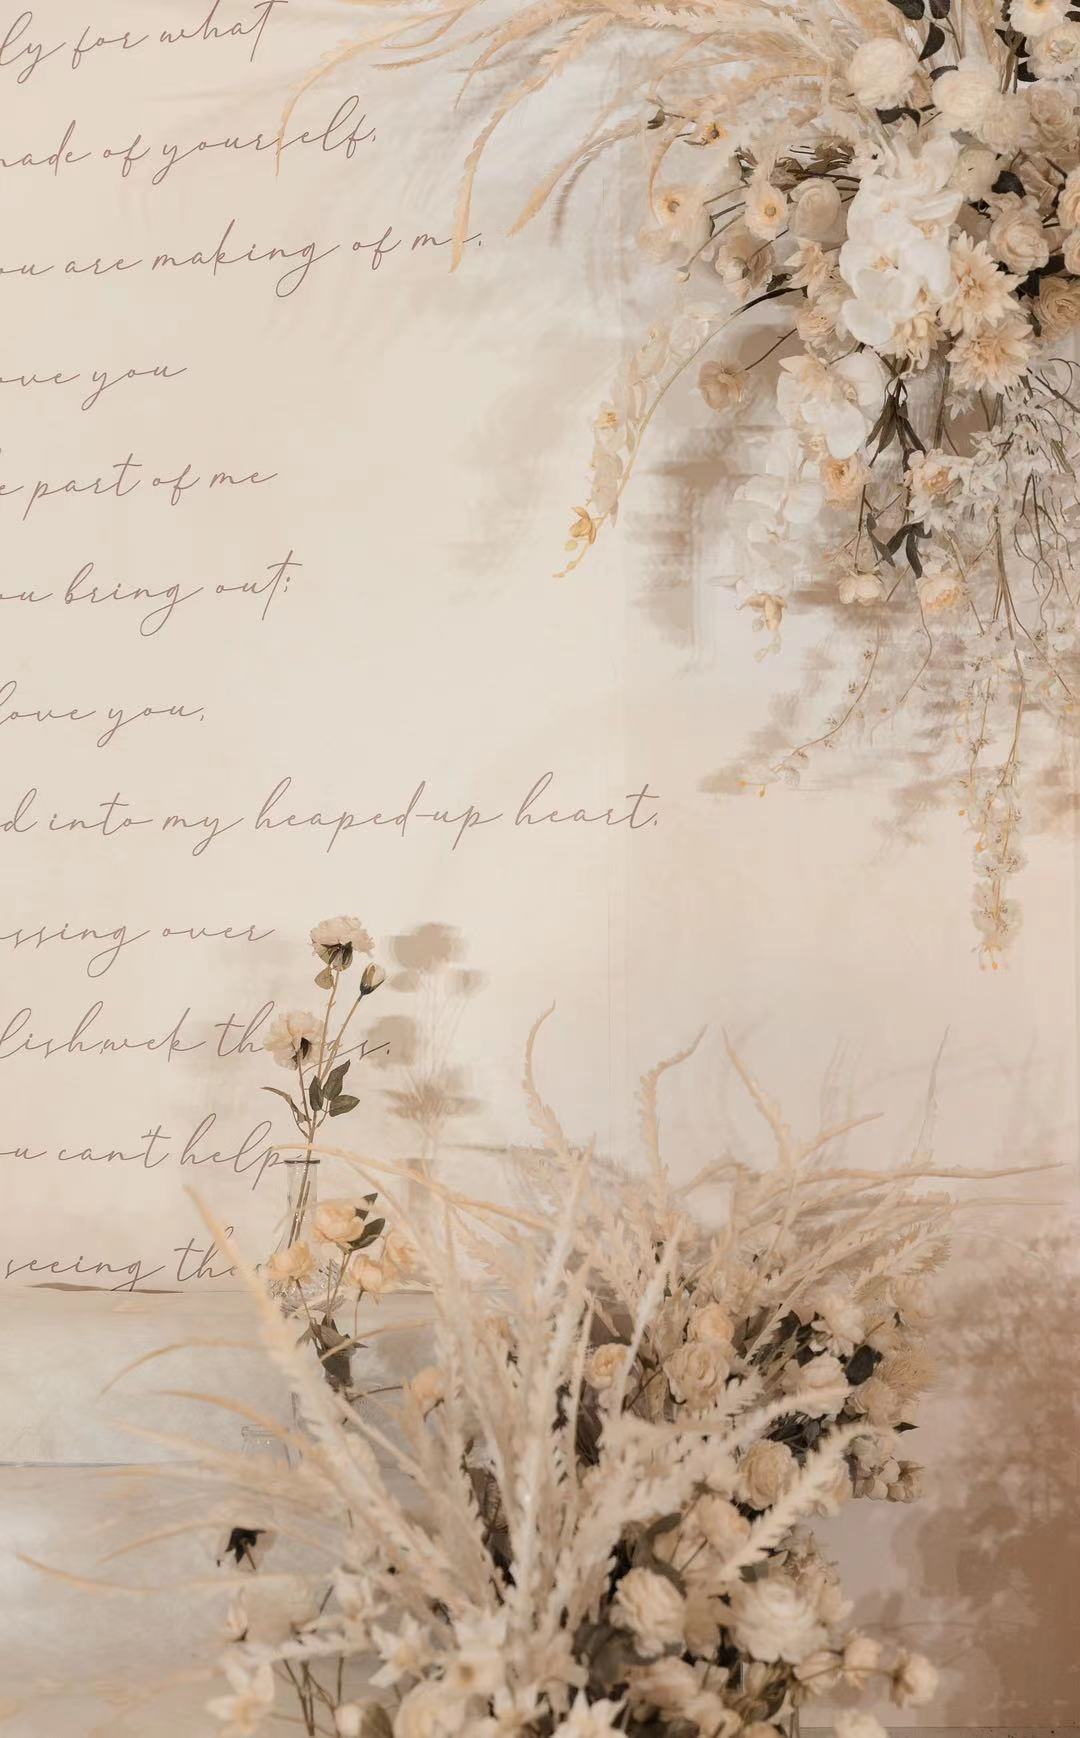 ly for what
made of yourself,
ou are making of me.
ove you
e part of me
ou bring out;
love you,
d into my heaped-up heart,
ssing over
lish, weak things.
ou can't help
seeing the